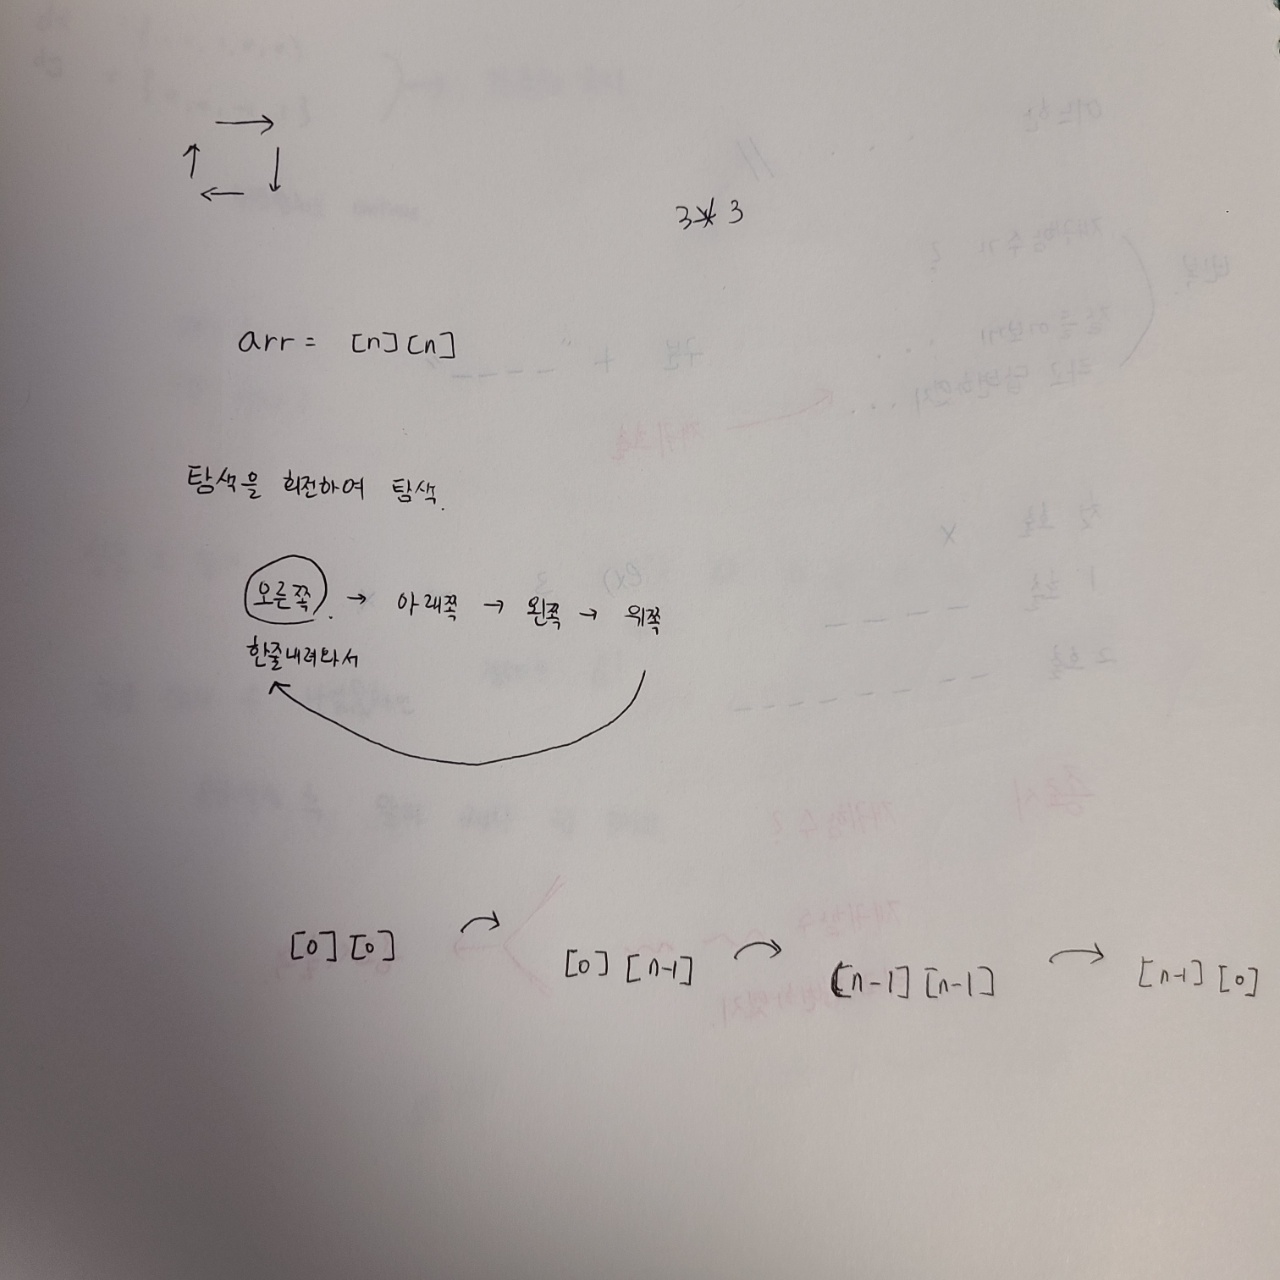 3*3
arr = [n][n]
탐색을 회전하여 탐색.
오른쪽. → 아래쪽 → 왼쪽 → 위쪽
한줄내려와서
[0][0] [0][n-1] [n-1][n-1] [n-1][0]